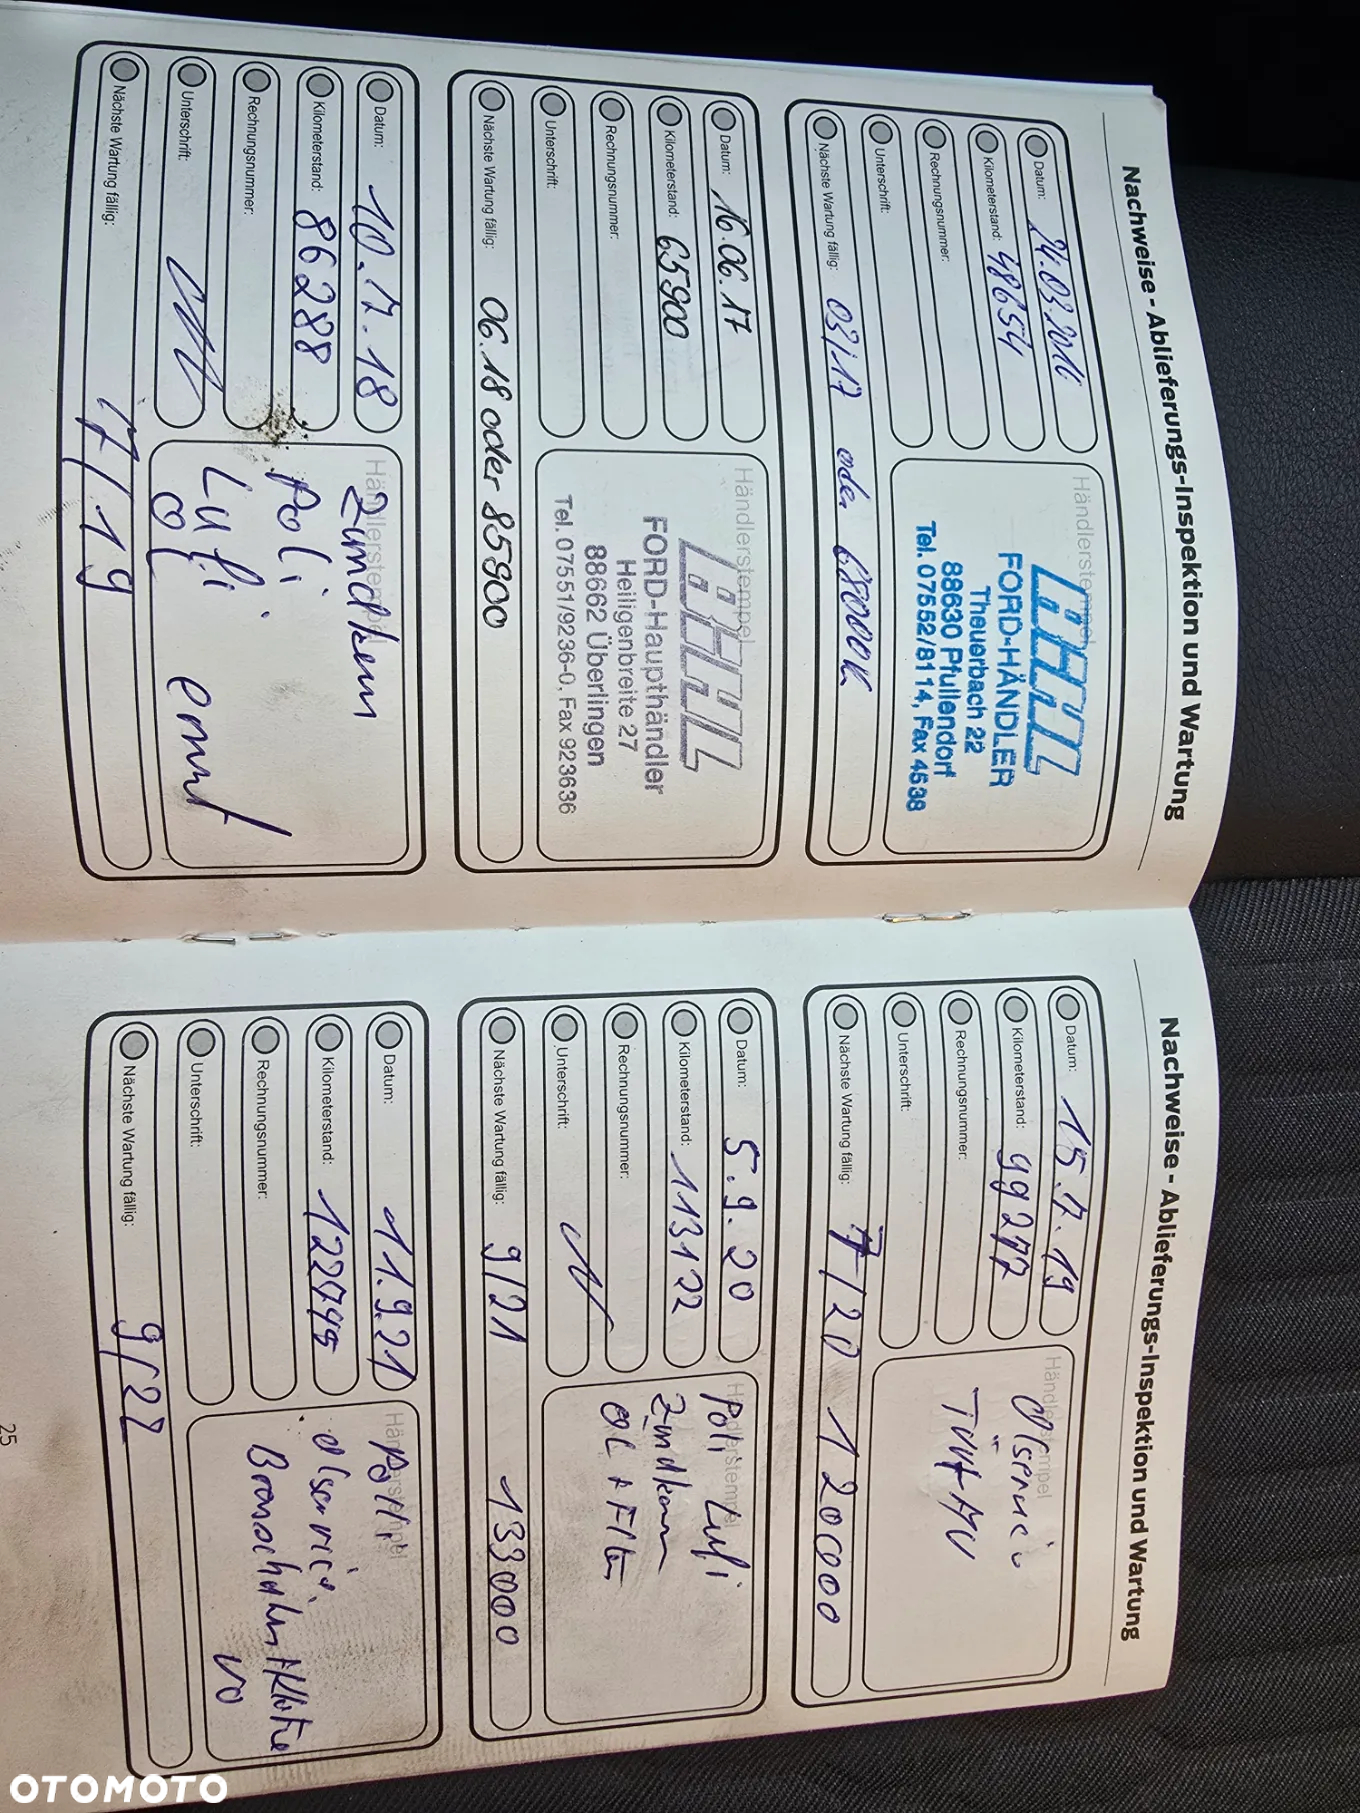 Nachweise - Ablieferungs-Inspektion und Wartung
Datum: 24.03.2016
Kilometerstand: 48654
Rechnungsnummer:
Unterschrift:
Nächste Wartung fällig: 03/17 oder 68000k
Händlerstempel
FORD-HÄNDLER
Theuerbach 22
88630 Pfullendorf
Tel. 07552/8114, Fax 4538
Datum: 16.06.17
Kilometerstand: 65900
Rechnungsnummer:
Unterschrift:
Nächste Wartung fällig: 06.18 oder 85900
Händlerstempel
FORD-Haupthändler
Heiligenbreite 27
88662 Überlingen
Tel. 07551/9236-0, Fax 923636
Datum: 10.7.18
Kilometerstand: 86288
Rechnungsnummer:
Unterschrift:
Nächste Wartung fällig: 7/19
Händlerstempel
Zündkerzen
Poli
Lufi
Nachweise - Ablieferungs-Inspektion und Wartung
Datum: 15.7.19
Kilometerstand: 99277
Rechnungsnummer:
Unterschrift:
Nächste Wartung fällig: 7/20 120000
Händlerstempel
Ölservice
TÜV+AU
Datum: 5.9.20
Kilometerstand: 113122
Rechnungsnummer:
Unterschrift:
Nächste Wartung fällig: 9/21 133000
Händlerstempel
Poli Lufi
Zündkerzen
Öl + Filter
Datum: 11.9.21
Kilometerstand:
Rechnungsnummer:
Unterschrift:
Nächste Wartung fällig: 9/22
Händlerstempel
Poli
Ölservice
Bremsscheiben + Klötze
VO
25
OTOMOTO